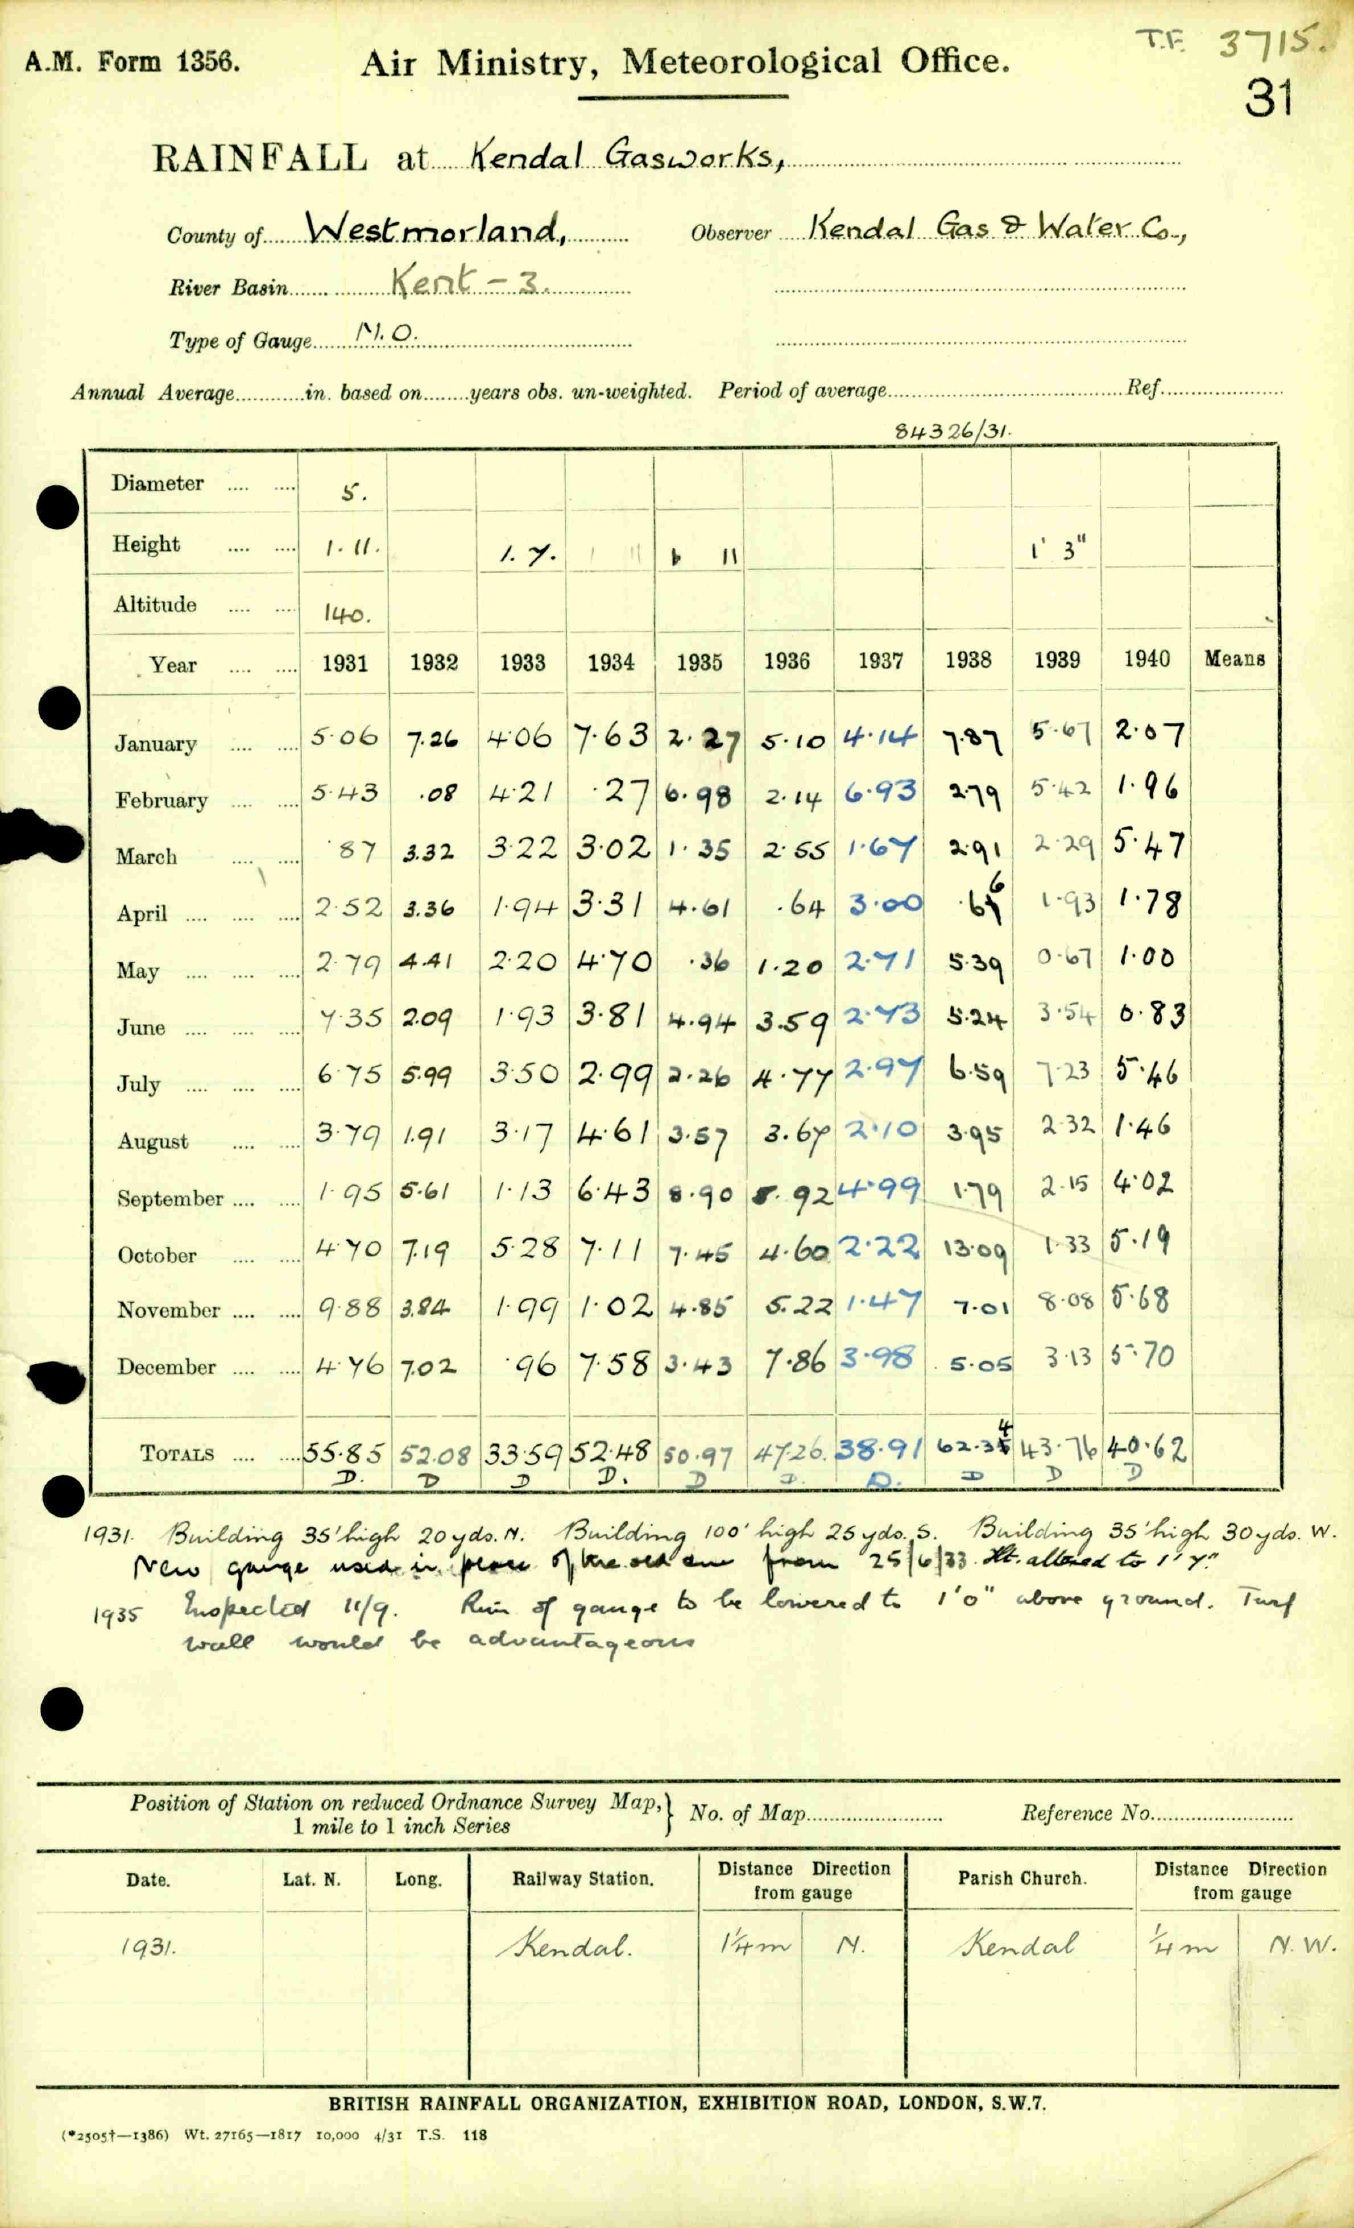 T.F. 3715.
A.M. Form 1356. Air Ministry, Meteorological Office.
31
RAINFALL at Kendal Gasworks,
County of Westmorland, Observer Kendal Gas & Water Co.,
River Basin Kent - 3.
Type of Gauge M.O.
Annual Average in. based on years obs. un-weighted. Period of average Ref.
84326/31.
Diameter 5.
Height 1. 11. 1. 7. 1 11 1 11 1' 3"
Altitude 140.
Year 1931 1932 1933 1934 1935 1936 1937 1938 1939 1940 Means
January 5.06 7.26 4.06 7.63 2.27 5.10 4.14 7.87 5.67 2.07
February 5.43 .08 4.21 .27 6.98 2.14 6.93 2.79 5.42 1.96
March .87 3.32 3.22 3.02 1.35 2.55 1.67 2.91 2.29 5.47
April 2.52 3.36 1.94 3.31 4.61 .64 3.00 .66 1.93 1.78
May 2.79 4.41 2.20 4.70 .36 1.20 2.71 5.39 0.67 1.00
June 7.35 2.09 1.93 3.81 4.94 3.59 2.73 5.24 3.54 0.83
July 6.75 5.99 3.50 2.99 2.26 4.77 2.97 6.59 7.23 5.46
August 3.79 1.91 3.17 4.61 3.57 3.67 2.10 3.95 2.32 1.46
September 1.95 5.61 1.13 6.43 8.90 5.92 4.99 1.79 2.15 4.02
October 4.70 7.19 5.28 7.11 7.45 4.60 2.22 13.09 1.33 5.19
November 9.88 3.84 1.99 1.02 4.85 5.22 1.47 7.01 8.08 5.68
December 4.76 7.02 .96 7.58 3.43 7.86 3.98 5.05 3.13 5.70
TOTALS 55.85 52.08 33.59 52.48 50.97 47.26. 38.91 62.34 43.76 40.62
D. D D D. D D. D. D D D
1931. Building 35' high 20 yds. N. Building 100' high 25 yds. S. Building 35' high 30 yds. W.
New gauge used in place of the old one from 25/6/33 Ht. altered to 1' 7"
1935 Inspected 11/9. Rim of gauge to be lowered to 1'0" above ground. Turf
wall would be advantageous
Position of Station on reduced Ordnance Survey Map, } No. of Map Reference No.
1 mile to 1 inch Series
Date. Lat. N. Long. Railway Station. Distance Direction from gauge Parish Church. Distance Direction from gauge
1931. Kendal. 1¼ m N. Kendal ¼ m N.W.
BRITISH RAINFALL ORGANIZATION, EXHIBITION ROAD, LONDON, S.W.7.
(*2505†—1386) Wt. 27165—1817 10,000 4/31 T.S. 118